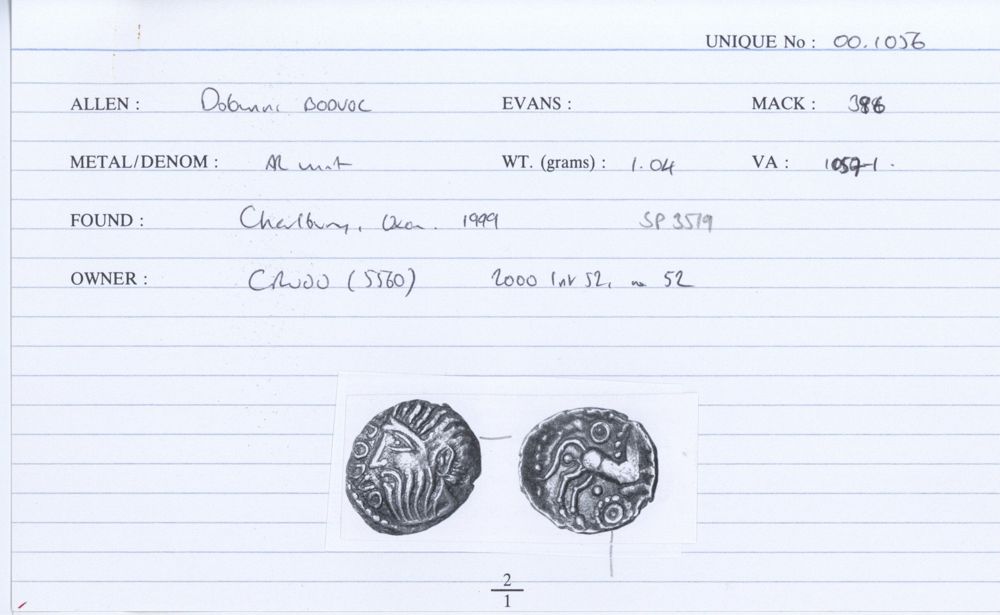 UNIQUE No : 00.1056
ALLEN : Dobunni BODVOC EVANS : MACK : 396
METAL/DENOM : AR unit WT. (grams) : 1.04 VA : 1057-1.
FOUND : Charlbury, Oxon. 1999 SP 3519
OWNER : CRUDD (5560) 2000 Inv 52, no 52
2
1